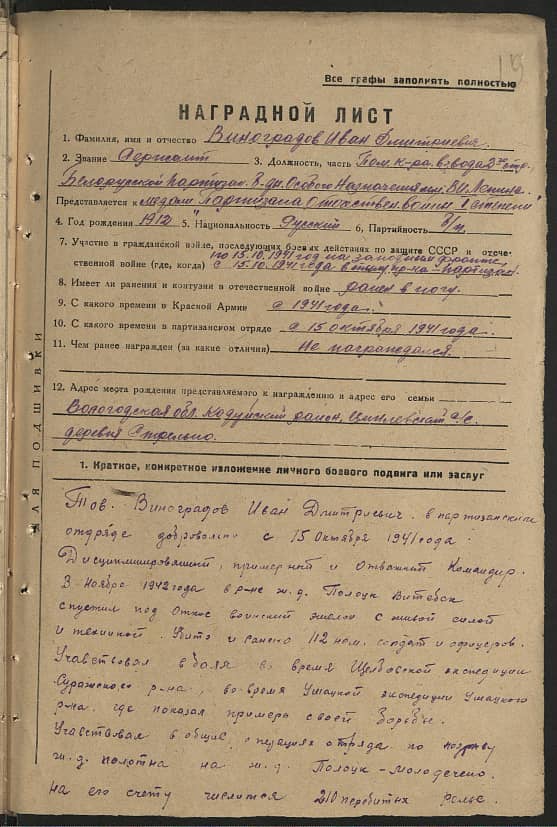 19
Все графы заполнять полностью
НАГРАДНОЙ ЛИСТ
1. Фамилия, имя и отчество Виноградов Иван Дмитриевич.
2. Звание Сержант 3. Должность, часть Пом. к-ра взвода 2й отр.
Белорусской Партизан. Б-ды Особого Назначения им. В.И. Ленина.
Представляется к медали "Партизана Отечествен. войны I степени"
4. Год рождения 1912 5. Национальность Русский 6, Партийность б/п
7. Участие в гражданской войне, последующих боевых действиях по защите СССР и отече-
по 15.10.1941 год на западном фронте
ственной войне (где, когда) с 15.10.1941 года в тылу пр-ка - партизан.
8. Имеет ли ранения и контузии в отечественной войне ранен в ногу.
9. С какого времени в Красной Армии с 1941 года.
10. С какого времени в партизанском отряде с 15 октября 1941 года.
11. Чем ранее награжден (за какие отличия) Не награждался.
12. Адрес места рождения представляемого к награждению и адрес его семьи
Вологодская обл. Кадуйский район, с/с.
деревня Стрельно.
ДЛЯ ПОДШИВКИ
1. Краткое, конкретное изложение личного боевого подвига или заслуг
Тов. Виноградов Иван Дмитриевич в партизанским
отряде добровольно с 15 Октября 1941 года.
Дисциплинированный, примерный и отважный Командир.
3 Ноября 1942 года в р-не ж.д. Полоцк Витебск
спустил под откос воинский эшелон с живой силой
и техникой. Убито и ранено 112 нем. солдат и офицеров.
Учавствовал в боях во время экспедиции
Суражского р-на, во время Ушацкой экспедиции Ушацкого
р-на. где показал примеры своей борьбы.
Учавствовал в общих операциях отряда по подрыву
ж.д. полотна на ж.д. Полоцк - Молодечено.
на его счету числится 210 перебитых рельс.